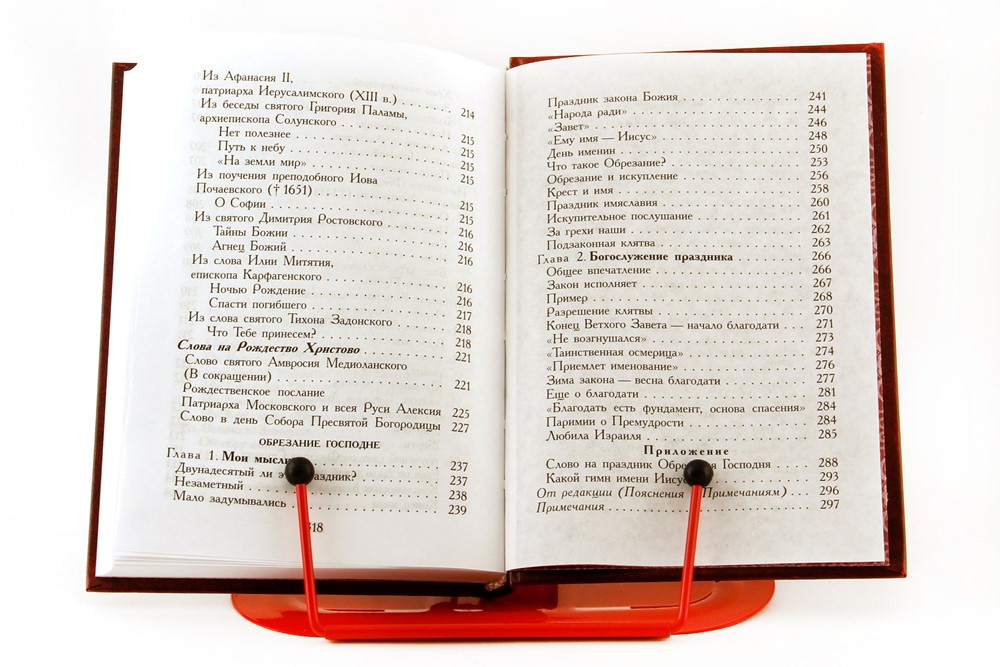 Из Афанасия II,
патриарха Иерусалимского (XIII в.) . . . . . . . 214
Из беседы святого Григория Паламы,
архиепископа Солунского . . . . . . . . . . . . . 215
Нет полезнее . . . . . . . . . . . . . . . . . . 215
Путь к небу . . . . . . . . . . . . . . . . . . . 215
«На земли мир» . . . . . . . . . . . . . . . . . 215
Из поучения преподобного Иова
Почаевского († 1651) . . . . . . . . . . . . . . . 215
О Софии . . . . . . . . . . . . . . . . . . . . . 215
Из святого Димитрия Ростовского . . . . . . . . . 216
Тайны Божии . . . . . . . . . . . . . . . . . . . 216
Агнец Божий . . . . . . . . . . . . . . . . . . . 216
Из слова Илии Митятия,
епископа Карфагенского . . . . . . . . . . . . . . 216
Ночью Рождение . . . . . . . . . . . . . . . . . 216
Спасти погибшего . . . . . . . . . . . . . . . . 217
Из слова святого Тихона Задонского . . . . . . . . 218
Что Тебе принесем? . . . . . . . . . . . . . . . 218
Слова на Рождество Христово . . . . . . . . . . . 221
Слово святого Амвросия Медиоланского
(В сокращении) . . . . . . . . . . . . . . . . . . 221
Рождественское послание
Патриарха Московского и всея Руси Алексия 225
Слово в день Собора Пресвятой Богородицы 227
ОБРЕЗАНИЕ ГОСПОДНЕ
Глава 1. Мои мысли . . . . . . . . . . . . . . . 237
Двунадесятый ли праздник? . . . . . . . . . . . . 237
Незаметный . . . . . . . . . . . . . . . . . . . 238
Мало задумывались . . . . . . . . . . . . . . . . 239
318
Праздник закона Божия . . . . . . . . . . . . . . 241
«Народа ради» . . . . . . . . . . . . . . . . . . 244
«Завет» . . . . . . . . . . . . . . . . . . . . . 246
«Ему имя — Иисус» . . . . . . . . . . . . . . . . 248
День именин . . . . . . . . . . . . . . . . . . . 250
Что такое Обрезание? . . . . . . . . . . . . . . . 253
Обрезание и искупление . . . . . . . . . . . . . . 256
Крест и имя . . . . . . . . . . . . . . . . . . . 258
Праздник имяславия . . . . . . . . . . . . . . . . 260
Искупительное послушание . . . . . . . . . . . . . 261
За грехи наши . . . . . . . . . . . . . . . . . . 262
Подзаконная клятва . . . . . . . . . . . . . . . . 263
Глава 2. Богослужение праздника . . . . . . . . . 266
Общее впечатление . . . . . . . . . . . . . . . . 266
Закон исполняет . . . . . . . . . . . . . . . . . 267
Пример . . . . . . . . . . . . . . . . . . . . . . 268
Разрешение клятвы . . . . . . . . . . . . . . . . 270
Конец Ветхого Завета — начало благодати . . . 271
«Не возгнушался» . . . . . . . . . . . . . . . . . 273
«Таинственная осмерица» . . . . . . . . . . . . . 274
«Приемлет именование» . . . . . . . . . . . . . . 276
Зима закона — весна благодати . . . . . . . . . . 277
Еще о благодати . . . . . . . . . . . . . . . . . 281
«Благодать есть фундамент, основа спасения» 284
Паримии о Премудрости . . . . . . . . . . . . . . 284
Любила Израиля . . . . . . . . . . . . . . . . . . 285
Приложение
Слово на праздник Обрезания Господня . . . . . . . 288
Какой гимн имени Иисус . . . . . . . . . . . . . . 293
От редакции (Пояснения Примечаниям) . . . 296
Примечания . . . . . . . . . . . . . . . . . . . . 297